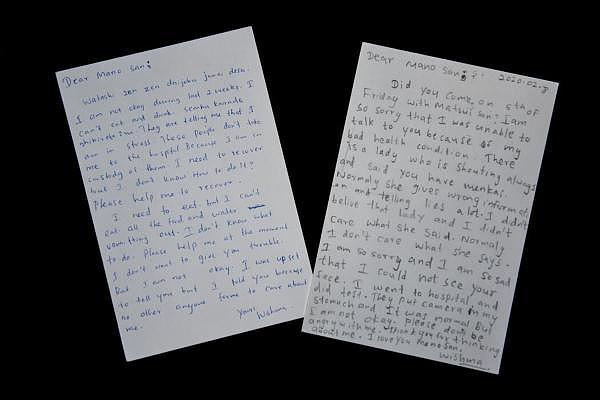 Dear Mano San;
Watashi zen zen daijobu janai desu.
I am not okay during last 2 weeks. I
can't eat and drink. Senbu karada
shibirete ima. They are telling me that I
am in stress. These people don't take
me to the hospital because I am in
custody of them. I need to recover
but I don't know How to do it?
Please help me to recover.
I need to eat. but I can't
eat. all the food and water
vomitting out. I don't know what
to do. Please help me at the moment
I don't want to give you turuble.
But I am not okay. I was upset
to tell you but I told you because
no other anyone forme to care about
me.
Your,
Wishma.
Dear Mano San; 2020.02.
Did you come, on 5th of
Friday with Matsui san? I am
so sorry that I was unable to
talk to you because of my
bad health condition. There
is a lady who is shouting always
and said you have menkai.
Normaly she gives wrong informati
on and telling lies a lot. I didn't
belive that lady and I didn't
care what she said. Normaly
I don't care what she says.
I am so sorry and I am so sad
that I could not see your
face. I went to hospital, and
did test. They put camera in my
stomuch and It was normal But
I am not okay. please don't be
angry with me. Thank you for thinking
about me. I love you mano san.
Wishma